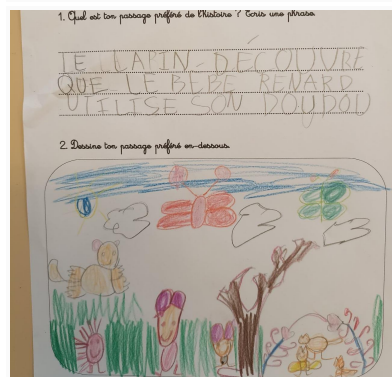 1. Quel est ton passage préféré de l'histoire ? Écris une phrase.
LE LAPIN DÉCOUVRE
QUE LE BEBE RENARD
UTILISE SON DOUDOU
2. Dessine ton passage préféré en-dessous.